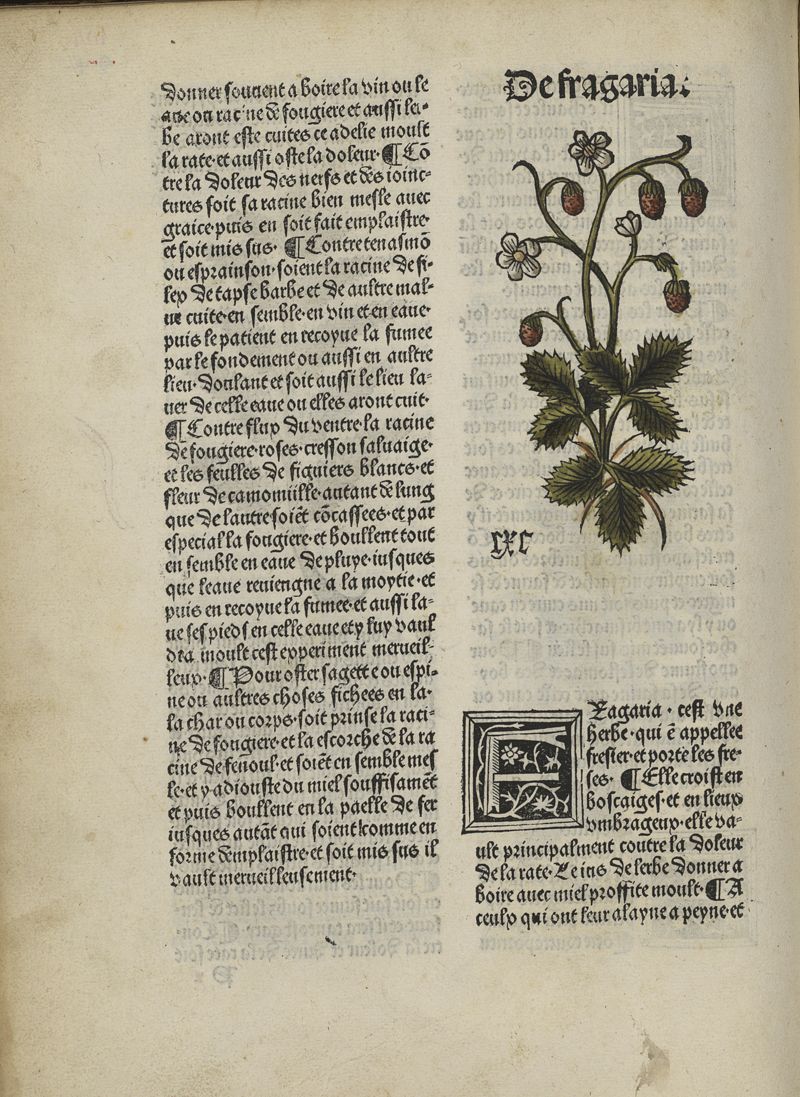 donner souuent a boire la vin ou le
aue ou racine de fougiere et aussi ler-
be aront este cuites ce adelie moult
la rate·et aussi oste la doleur·¶Cõ
tre la doleur des nerfs et des ioinc-
tures soit sa racine bien mesle auec
graice·puis en soit fait emplaistre·
et soit mis sus·¶Contre tenasmõ
ou esprainson·soient la racine de fi-
lex de tapse barbe et de aultre mal-
ue cuite·en semble·en vin et en eaue·
puis le patient en recoyue la fumee
par le fondement ou aussi en aultre
lieu·doulant et soit aussi le lieu la-
uer de celle eaue ou elles aront cuit·
¶Contre flux du ventre·la racine
de fougiere·roses·cresson saluaige·
et les feulles de figuiers blancs·et
fleur de camomiille·autant de lung
que de lautre soiẽt cõcassees·et par
especial la fougiere·et boullent tout
en semble en eaue de pluye·iusques
que leaue reuiengne a la moytie·et
puis en recoyue la fumee·et aussi la-
ue ses pieds en celle eaue et y luy vaul
dra moult cest experiment merueil-
leux·¶Pour oster sagette ou espi-
ne ou aultres choses fichees en la·
la char ou corps·soit prinse la raci-
ne de fougiere·et la escorche de la ra
cine de fenoul·et soiẽt en semble mes
le·et y adiouste du miel souffisamẽt
et puis boullent en la paelle de fer
iusques autãt qui soient comme en
forme demplaistre·et soit mis sus il
vault merueilleusement·
De fragaria.
LXC
FRagaria·cest vne
herbe·qui ẽ appellee
fresier·et porte les fre-
ses·¶Elle croist en
boscaiges·et en lieux
vmbrageux·elle va-
ult principalment contre la doleur
de la rate·Le ius de lerbe donner a
boire auec miel proffite moult·¶A
ceulx qui ont leur alayne a peyne·et